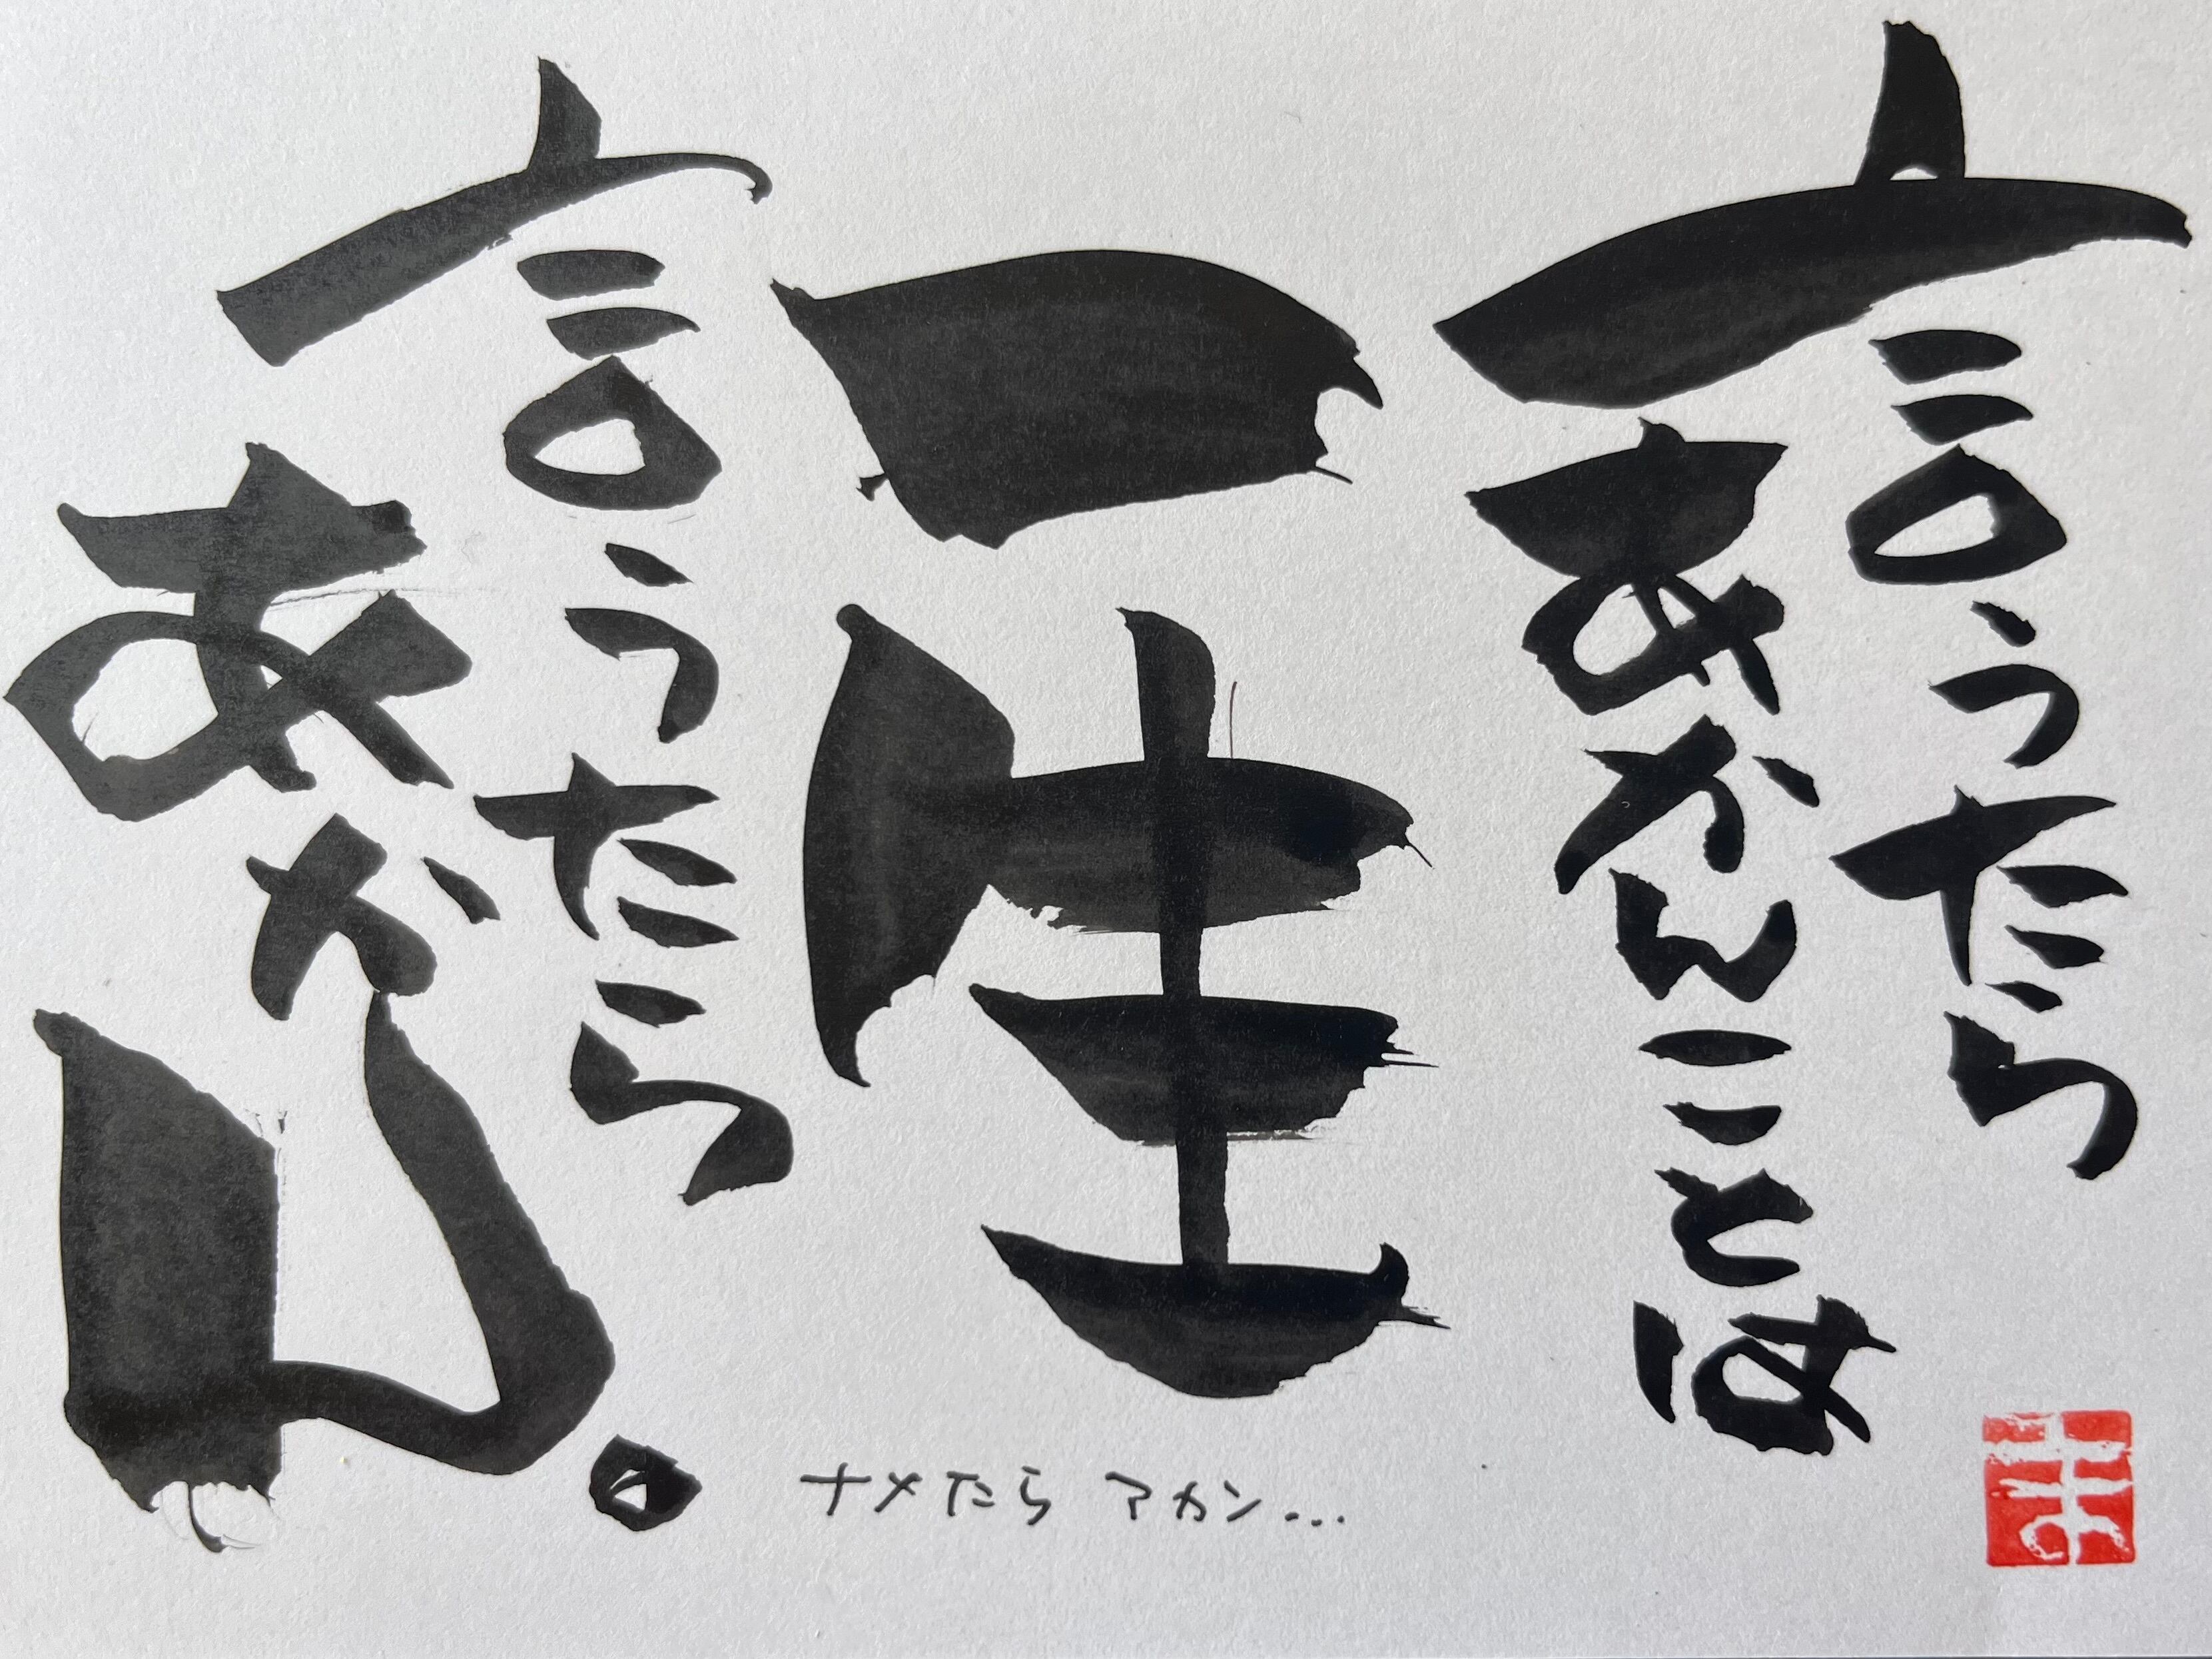 言うたら
あかんことは
一生
言うたら
あかん。
ナメたら アカン...